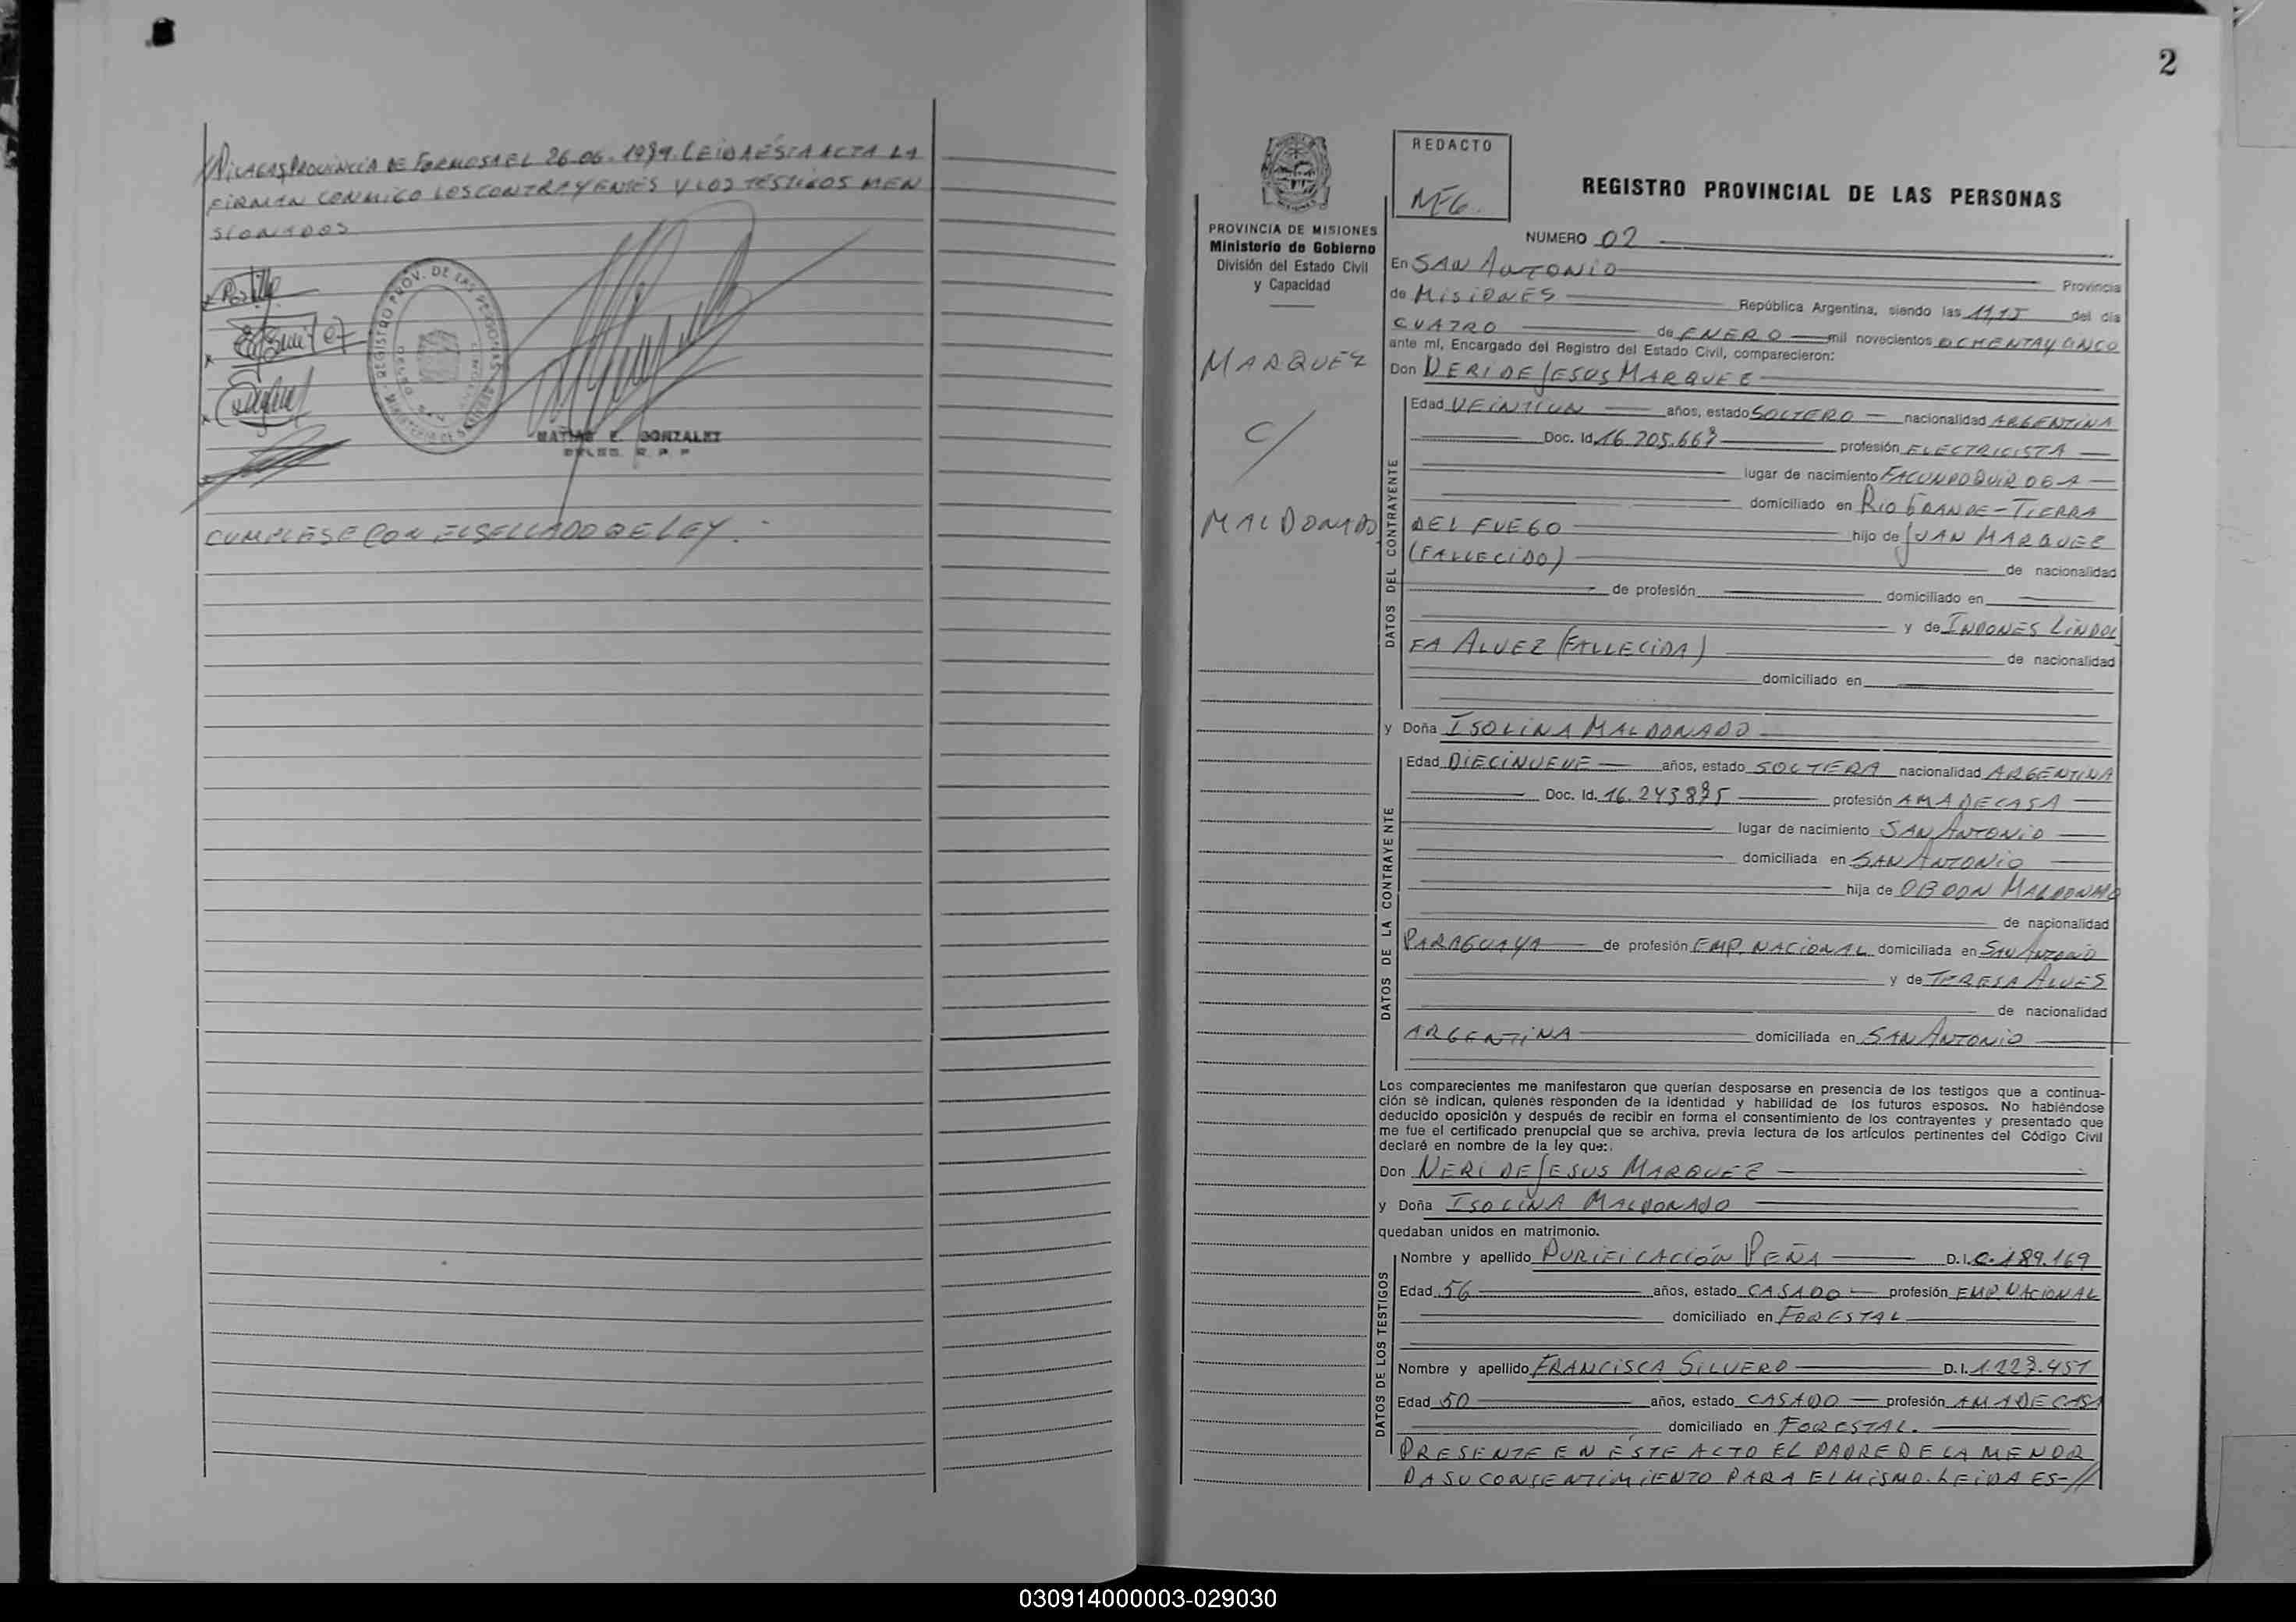 PROVINCIA DE FORMOSA EL 26-06-1979. LEIDA ÉSTA ACTA LA
FIRMAN CONMIGO LOS CONTRAYENTES Y LOS TESTIGOS MEN
SIONADOS
REGISTRO PROV. DE LAS PERSONAS
MATIAS E. GONZALEZ
CUMPLESE CON EL SELLADO DE LEY.
2
PROVINCIA DE MISIONES
Ministerio de Gobierno
División del Estado Civil
y Capacidad
MARQUEZ
C/
MALDONADO
REDACTO
MEG.
REGISTRO PROVINCIAL DE LAS PERSONAS
NUMERO 02
En SAN ANTONIO Provincia
de MISIONES República Argentina, siendo las 11,15 del día
CUATRO de ENERO mil novecientos OCHENTA Y CINCO
ante mí, Encargado del Registro del Estado Civil, comparecieron:
Don NERI DE JESUS MARQUEZ
DATOS DEL CONTRAYENTE
Edad VEINTIUN años, estado SOLTERO nacionalidad ARGENTINA
Doc. Id. 16.205.667 profesión ELECTRICISTA
lugar de nacimiento FACUNDO QUIROGA
domiciliado en RIO GRANDE-TIERRA
DEL FUEGO hijo de JUAN MARQUEZ
(FALLECIDO) de nacionalidad
de profesión domiciliado en
y de INDONES LINDOL
FA ALVEZ (FALLECIDA) de nacionalidad
domiciliado en
y Doña ISOLINA MALDONADO
DATOS DE LA CONTRAYENTE
Edad DIECINUEVE años, estado SOLTERA nacionalidad ARGENTINA
Doc. Id. 16.243875 profesión AMA DE CASA
lugar de nacimiento SAN ANTONIO
domiciliada en SAN ANTONIO
hija de OBDON MALDONADO
de nacionalidad
PARAGUAYA de profesión EMP. NACIONAL domiciliada en SAN ANTONIO
y de TERESA ALVES
de nacionalidad
ARGENTINA domiciliada en SAN ANTONIO
Los comparecientes me manifestaron que querían desposarse en presencia de los testigos que a continua-
ción se indican, quienes responden de la identidad y habilidad de los futuros esposos. No habiéndose
deducido oposición y después de recibir en forma el consentimiento de los contrayentes y presentado que
me fue el certificado prenupcial que se archiva, previa lectura de los artículos pertinentes del Código Civil
declaré en nombre de la ley que:
Don NERI DE JESUS MARQUEZ
y Doña ISOLINA MALDONADO
quedaban unidos en matrimonio.
DATOS DE LOS TESTIGOS
Nombre y apellido PURIFICACIÓN PEÑA D.I. C.189.169
Edad 56 años, estado CASADO profesión EMP. NACIONAL
domiciliado en FORESTAL
Nombre y apellido FRANCISCA SILVERO D.I. 1.227.451
Edad 50 años, estado CASADO profesión AMA DE CASA
domiciliado en FORESTAL.
PRESENTE EN ESTE ACTO EL PADRE DE LA MENOR
DA SU CONSENTIMIENTO PARA EL MISMO. LEIDA ES-//
030914000003-029030